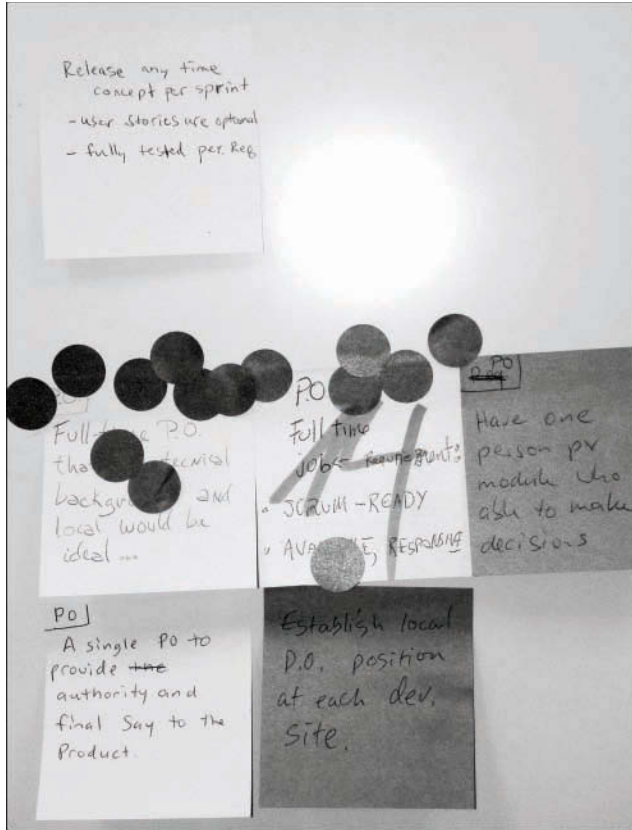 Release any time
concept per sprint
- user stories are optional
- fully tested per Req.
Full-time P.O.
local would be
ideal ...
PO
Full time
job ← Requirement:
• SCRUM-READY
• RESPONSIVE
PO
Have one
person pr
module who
able to make
decisions
PO
A single PO to
provide the
authority and
final say to the
Product.
Establish local
P.O. position
at each dev.
site.